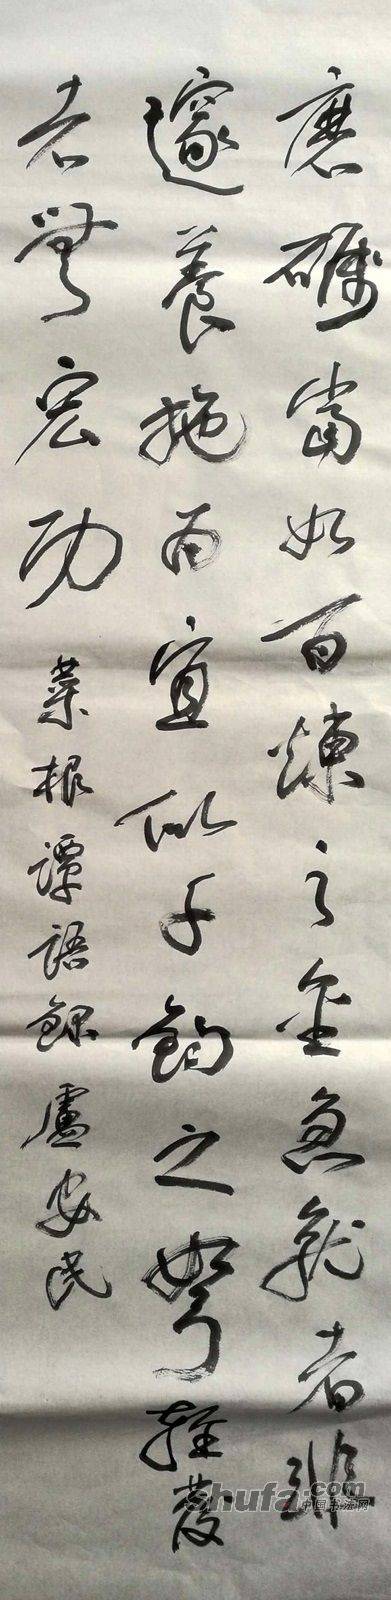 磨礪當如百煉之金急就者非
邃養施為宜似千鈞之弩輕發
者無宏功 菜根譚語錄 盧安民
shufa.com
中国书法网